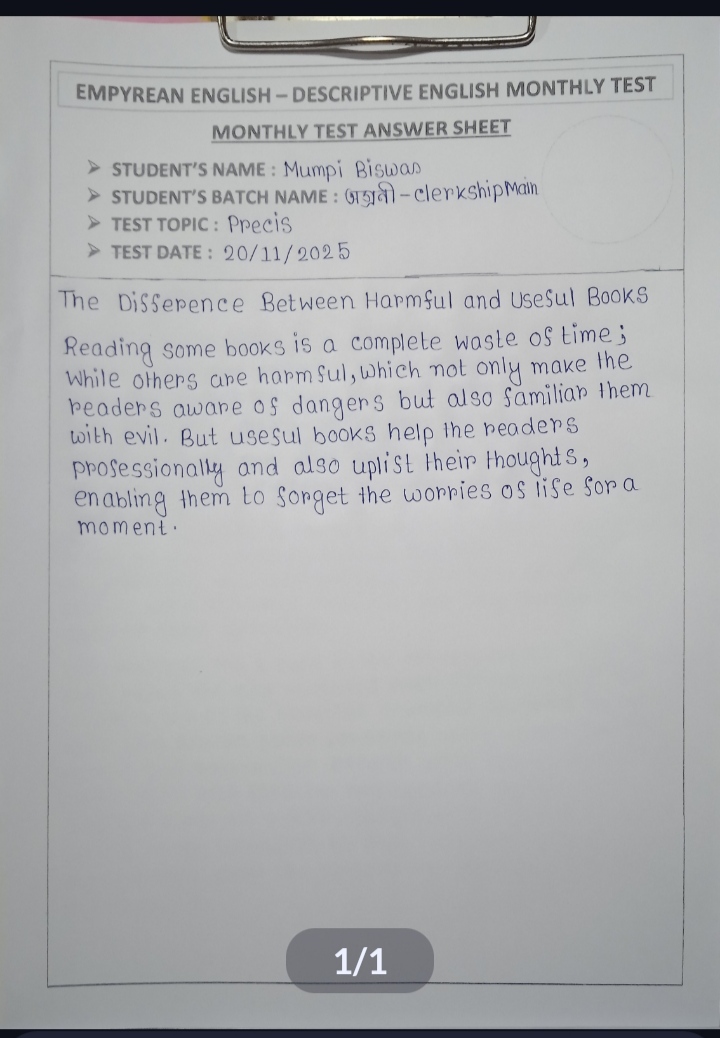 EMPYREAN ENGLISH – DESCRIPTIVE ENGLISH MONTHLY TEST
MONTHLY TEST ANSWER SHEET
➤ STUDENT'S NAME : Mumpi Biswas
➤ STUDENT'S BATCH NAME : অগ্রণী - clerkship Main
➤ TEST TOPIC : Precis
➤ TEST DATE : 20/11/2025
The Difference Between Harmful and Useful Books
Reading some books is a complete waste of time;
While others are harmful, which not only make the
readers aware of dangers but also familiar them
with evil. But useful books help the readers
professionally and also uplift their thoughts,
enabling them to forget the worries of life for a
moment.
1/1